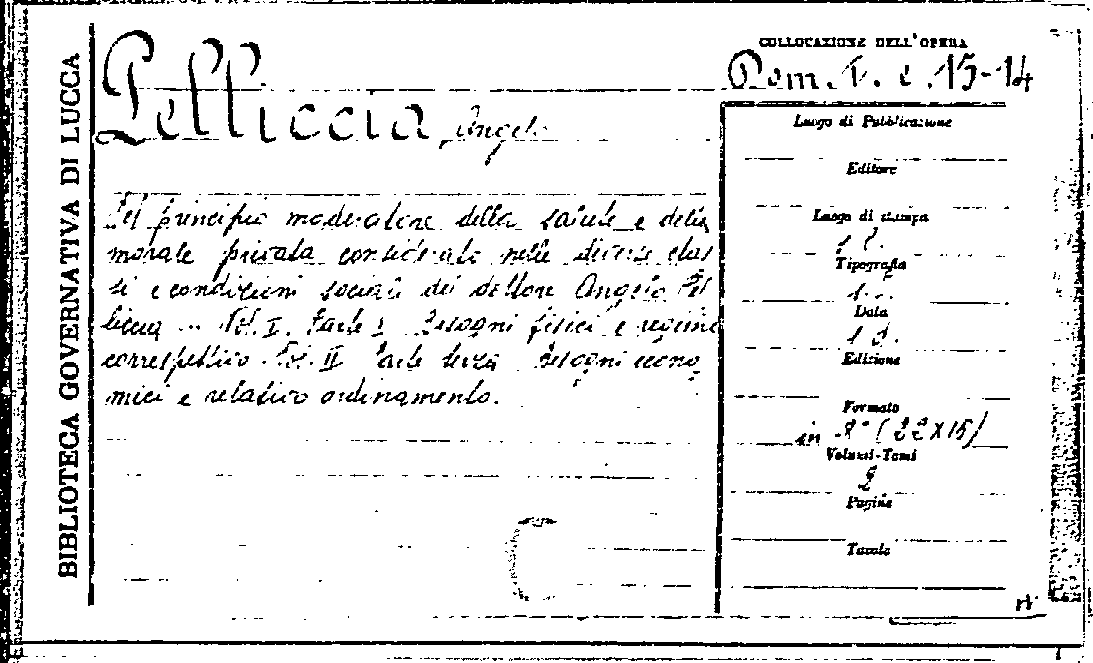 BIBLIOTECA GOVERNATIVA DI LUCCA
COLLOCAZIONE DELL'OPERA
Rom. V. c. 15-14
Pelliccia, Angelo
Del principio moderatore della salute e della
morale privata considerato nelle diverse clas
si e condizioni sociali del dottore Angelo Pel
liccia ... Vol. I. Parte I Bisogni fisici e regime
correspettivo. Vol. II Parte terza Bisogni econo
mici e relativo ordinamento.
Luogo di Pubblicazione
Editore
Luogo di stampa
s. l.
Tipografia
Data
Edizione
Formato
in 8° (22x15)
Volumi-Tomi
2
Pagine
Tavole